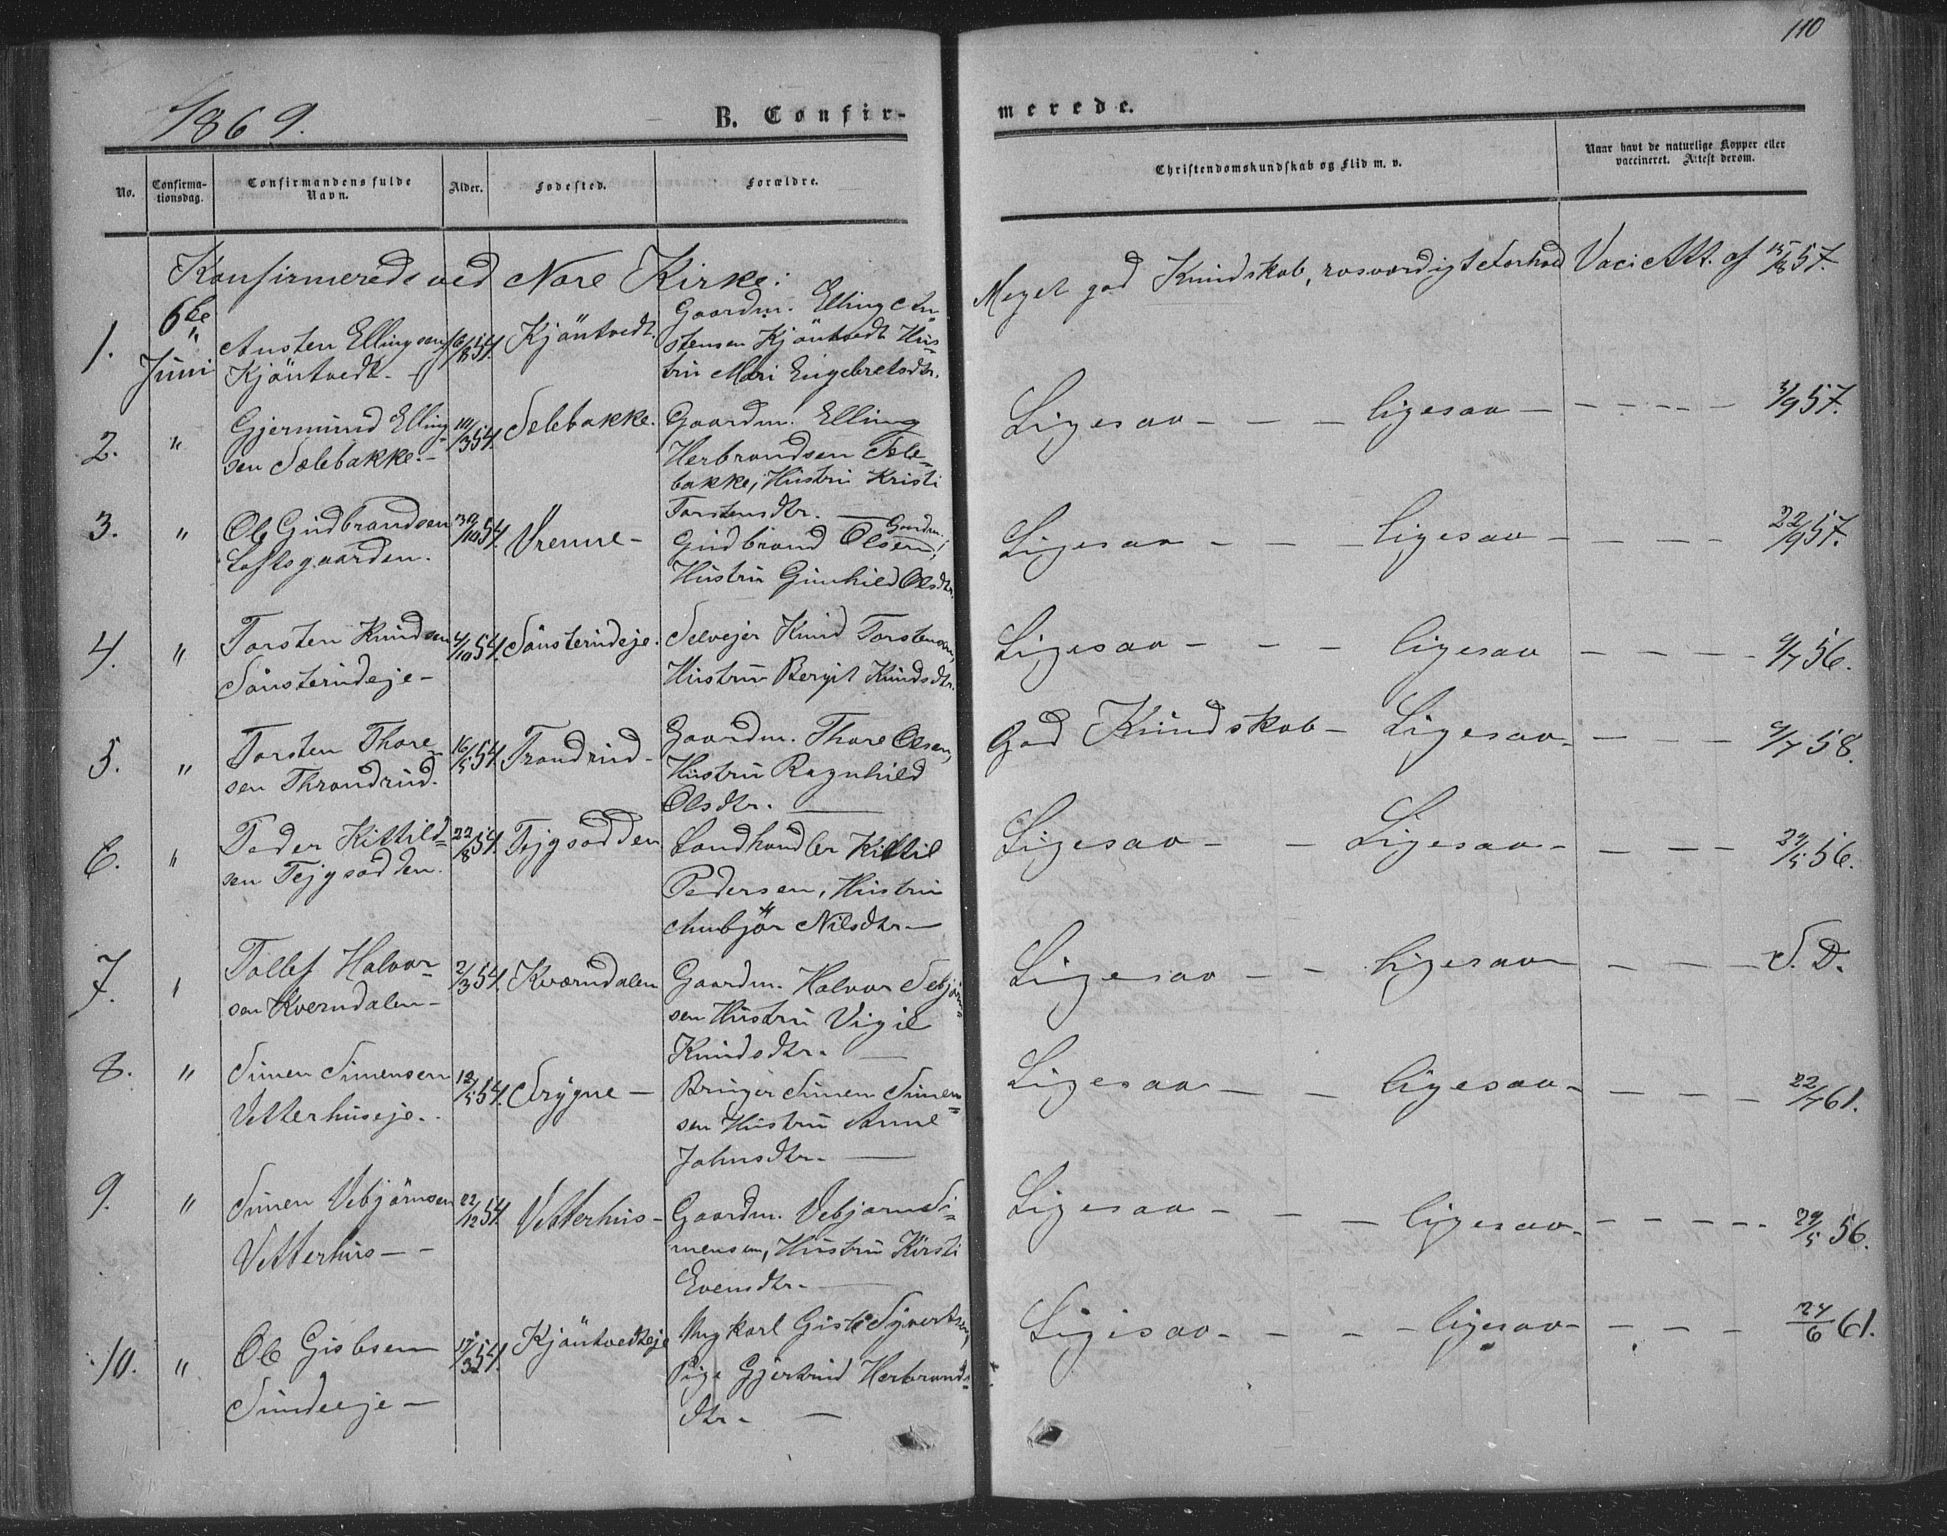 110
1869.
B. Confir-
merede.
No.
Confirma-
tionsdag.
Confirmandens fulde
Navn.
Alder.
Fødested.
Forældre.
Christendomskundskab og Flid m. v.
Naar havt de naturlige Kopper eller
vaccineret. Attest derom.
Konfirmerede ved Nore Kirke:
1.
6te
"
Juni
Austen Ellingsen
Kjöntvedt. -
54.
Kjöntvedt.
Gaardm. Elling Au-
stensen Kjöntvedt Hus-
tru Mari Engebretsdtr.
Meget god Kundskab, rosværdigt Forhold
Vaci Att. af 15/8 57.
2.
"
Gjermund Elling-
sen Sælebakke. -
54.
Sælebakke.
Gaardm. Elling
Herbrandsen Sæle-
bakke, Hustru Kristi
Torstensdtr. -
Ligesaa - - - ligesaa - - - - -
/9 57.
3.
"
Ole Gudbrandsen
Loftsgaarden.
30/10 54.
Vrenne -
Gaardm.
Gudbrand Olsen,
Hustru Gunhild Olsdtr.
Ligesaa - - - ligesaa - - - -
22/9 57.
4.
"
Torsten Knudsen
Sönsterudeje -
4/10 54.
Sönsterudeje.
Selvejer Knud Torstensen,
Hustru Bergit Knudsdtr.
Ligesaa - - - ligesaa - - - -
9/7 56.
5.
"
Torsten Thore-
sen Throndrud.
16/5 54.
Trondrud -
Gaardm. Thore Olsen,
Hustru Ragnhild
Olsdtr. -
God Kundskab - Ligesaa - - - -
9/7 58.
6.
"
Peder Kittild-
sen Tejgsødden.
22/8 54.
Tejgsødden
Landhandler Kittil
Pedersen, Hustru
Anbjör Nilsdtr -
Ligesaa - - Ligesaa - - - -
29/5 56.
7.
"
Tollef Halvor-
sen Kverndalen -
2/3 54.
Kværndalen
Gaardm. Halvor Sebjörn-
sen Hustru Vigil
Knudsdtr. -
Ligesaa - - ligesaa - - - -
S. D.
8.
"
Simen Simensen
Vetterhuseje. -
12/5 54.
Strygne -
Bruger Simen Simen-
sen Hustru Anne
Johnsdtr. -
Ligesaa - - - ligesaa - - - - -
22/7 61.
9.
"
Simen Vebjörnsen
Vetterhus - -
22/12 54.
Vetterhus -
Gaardm. Vebjørn Si-
mensen, Hustru Kirsti
Evensdtr. -
Ligesaa - - - ligesaa - - - - -
29/5 56.
10.
"
Ole Gislesen
Sundeeje -
54.
Kjöntvedteje
Ungkarl Gisle Syvertsen,
Pige Gjertrud Herbrands-
dtr. -
Ligesaa - - - - ligesaa - - - -
24/6 61.